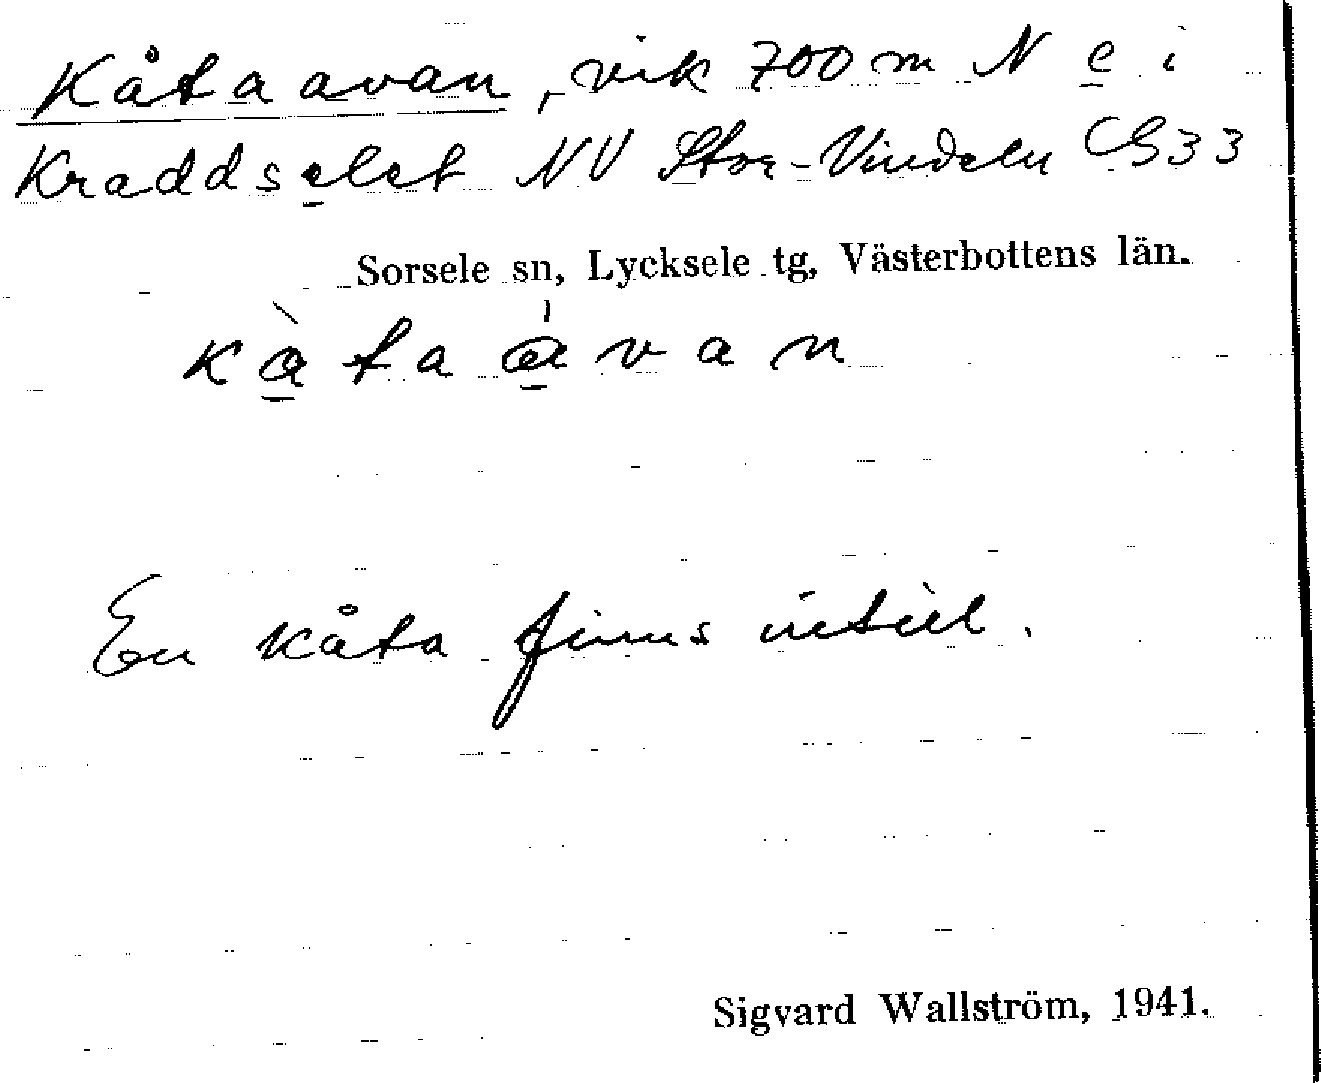 Kåtaavan, vik 700 m N e i
Kraddselet NV Stor-Vindeln CG33
Sorsele sn, Lycksele tg, Västerbottens län.
kå̀taa̍van
En kåta finns intill.
Sigvard Wallström, 1941.